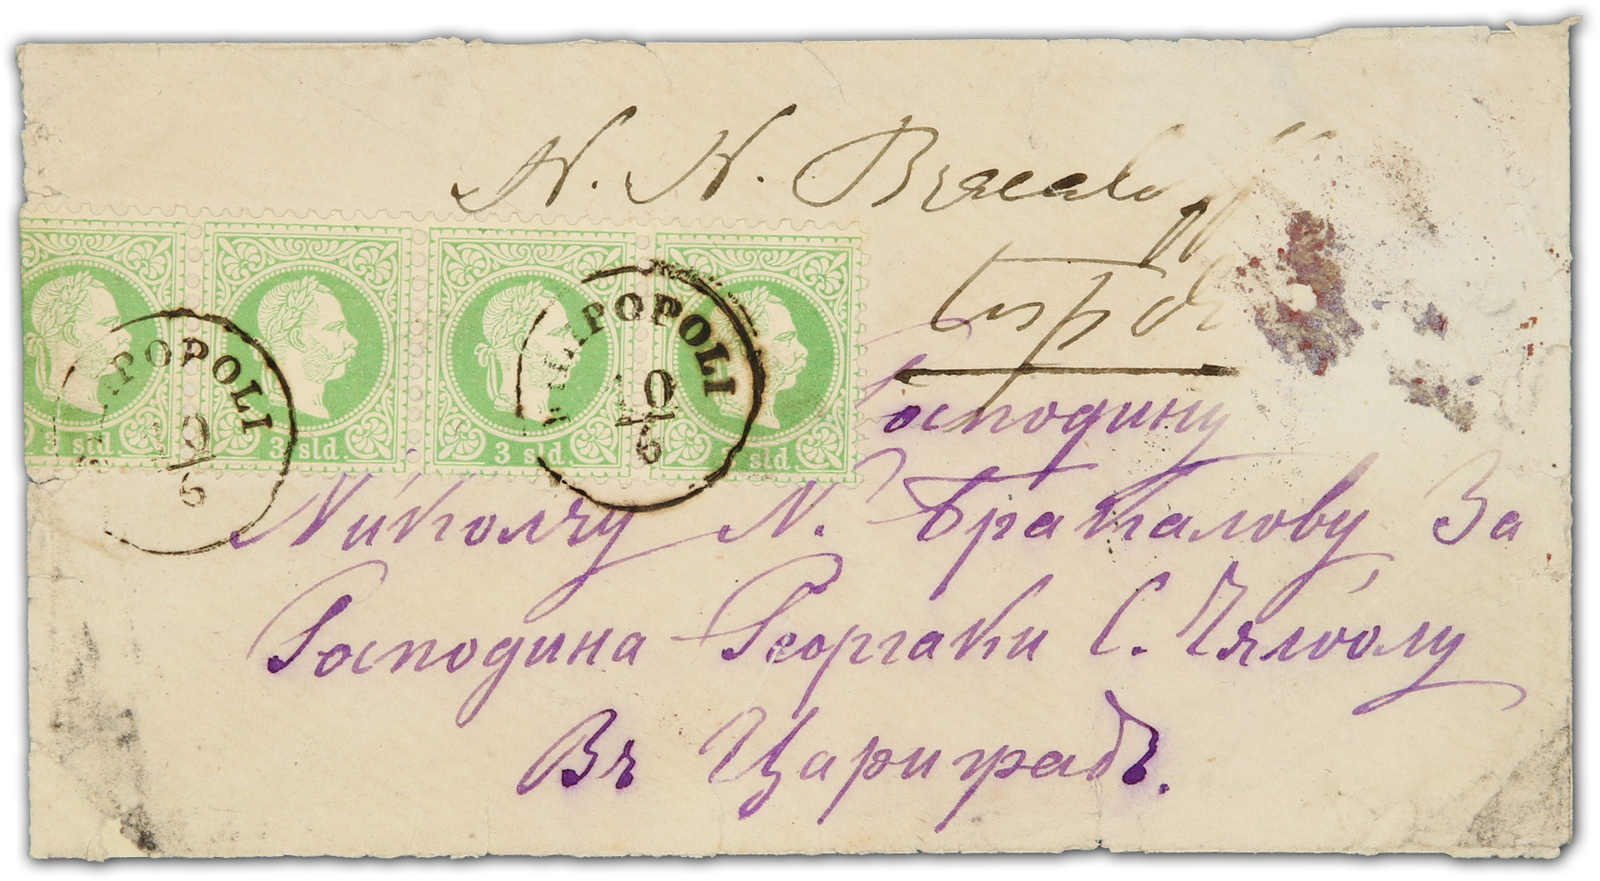 N. N.
POPOLI
10
6
3 sld.
3 sld.
3 sld.
3 sld.
POPOLI
10
6
Господину
Николчу N. Бракалову За
Господина Георгаки С. Чялоолу
Въ Цариградъ.